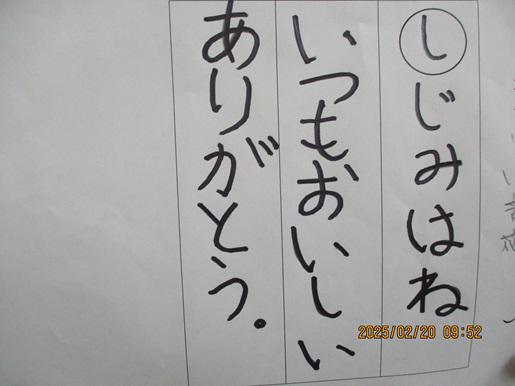 しじみはね
いつもおいしい
ありがとう。
2025/02/20 09:52